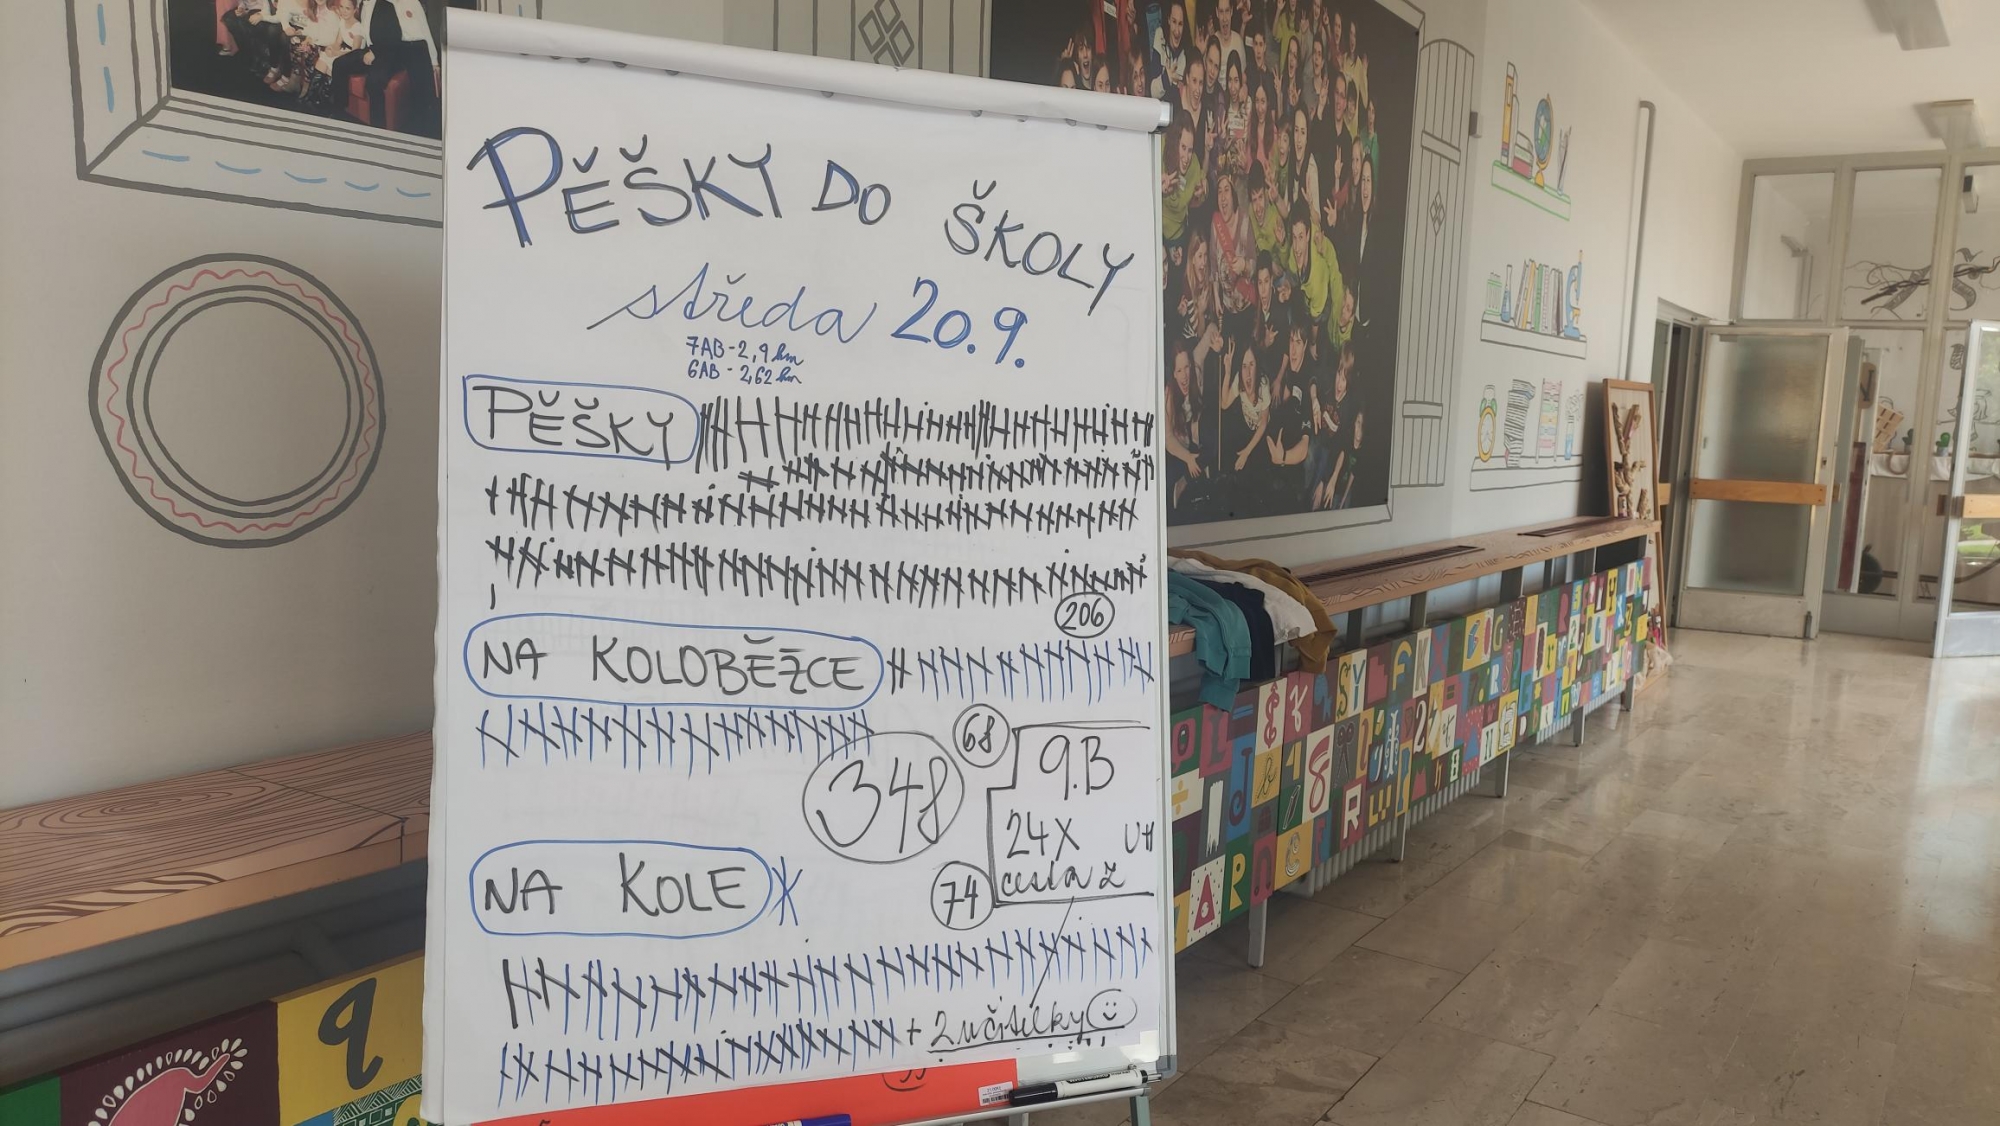 PĚŠKY DO ŠKOLY
středa 20.9.
7AB - 2,9 km
6AB - 2,62 km
PĚŠKY
206
NA KOLOBĚŽCE
68
348
9.B
24X
cesta z
74
NA KOLE
+ 2 učitelky